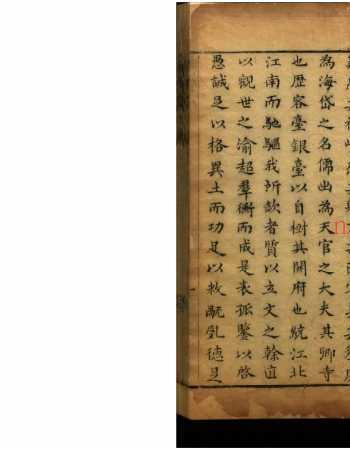 為海岱之名儒出為天官之大夫其卿寺
也歷容臺銀臺以自樹其開府也統江北
江南而馳驅我所歆者質以立文之幹直
以觀世之渝超羣衡而成是裘孤鑒以啓
愚誠足以格異土而功足以救亂德足